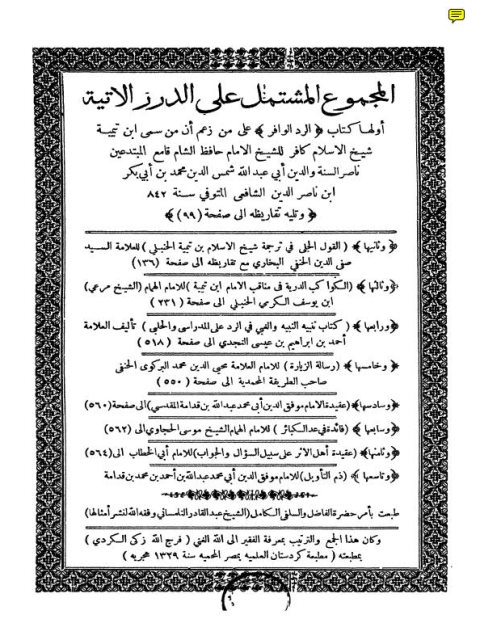 المجموع المشتمل على الدرر الاتية
أولها كتاب ﴿ الرد الوافر ﴾ على من زعم أن من سمى ابن تيمية
شيخ الاسلام كافر للشيخ الامام حافظ الشام قامع المبتدعين
ناصر السنة والدين أبي عبد الله شمس الدين محمد بن أبي بكر
ابن ناصر الدين الشافعى المتوفي سنة ٨٤٢
﴿ وتليه تقاريظه الى صفحة (٩٩) ﴾
﴿ وثانيها ﴾ ( القول الجلى في ترجمة شيخ الاسلام بن تيمية الحنبلى ) للعلامة السيد
صفى الدين الحنفي البخارى مع تقاريظه الى صفحة (١٣٦)
﴿وثالثها ﴾ (الكواكب الدرية في مناقب الامام ابن تيمية )للامام الهمام (الشيخ مرعى)
ابن يوسف الكرمى الحنبلى الى صفحة ( ٢٣١ )
﴿ورابعها ﴾ ( كتاب تنبيه النبيه والغبي في الرد على المدراسى والحلبى ) تأليف العلامة
أحمد بن ابراهيم بن عيسى النجدى الى صفحة ( ٥١٨ )
﴿ وخامسها ﴾ ( رسالة الزيارة ) للامام العلامة محيى الدين محمد البركوى الحنفى
صاحب الطريقة المحمدية الى صفحة ( ٥٥٠ )
﴿وسادسها﴾(عقيدة الامام موفق الدين أبى محمد عبد الله بن قدامة المقدسى)الى صفحة(٥٦٠)
﴿وسابعها ﴾ (فائدة في عد الكبائر ) للامام الهمام الشيخ موسى الحجاوى الى (٥٦٢)
﴿وثامنها﴾ (عقيدة أهل الاثر على سبيل السؤال والجواب) للامام أبي الخطاب الى (٥٦٤)
﴿وتاسعها ﴾ (ذم التأويل) للامام موفق الدين أبي محمد عبد الله بن أحمد بن محمد بن قدامة
طبعت بأمر حضرة الفاضل والسلفى الكامل (الشيخ عبد القادر التلمسانى وفقه الله لنشر أمثالها)
وكان هذا الجمع والترتيب بمعرفة الفقير الى الله الغني ( فرج الله زكى الكردى )
بمطبعته ( مطبعة كردستان العلميه بمصر المحميه سنة ١٣٢٩ هجريه )